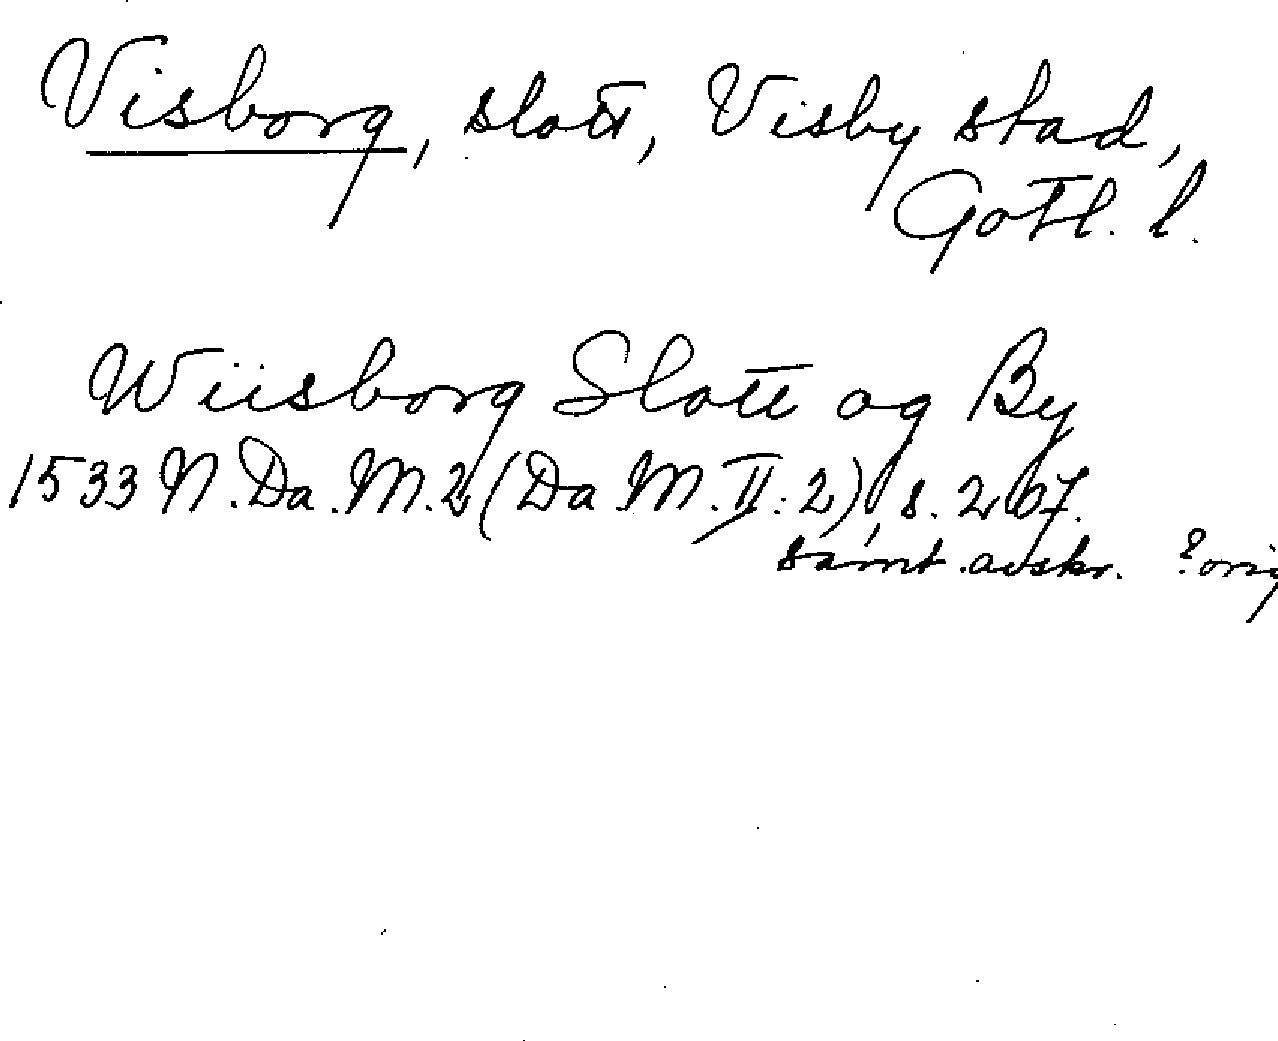 Visborg, slott, Visby stad,
Gotl. l.
Wiisborg Slott og By
1533 N. Da. M. 2 (Da M. II: 2), s. 267.
samt. avskr. ? orig